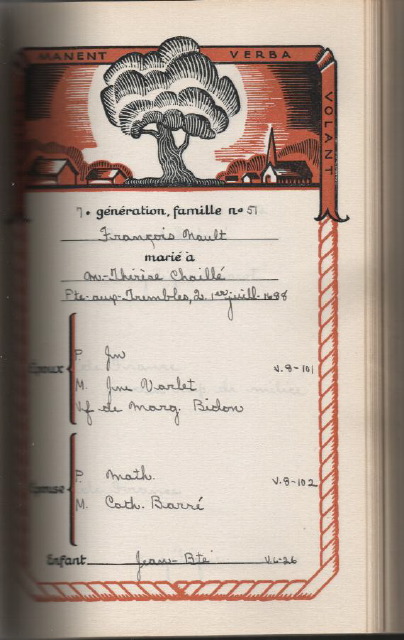 MANENT VERBA VOLANT
7e génération, famille no 51
François Nault
marié à
M-Thérèse Chaillé
Pte-aux-Trembles, Q. 1er juill. 1698
Epoux
P. Jn V.8-101
M. Jne Varlet
Vf de Marg. Bidon
Epouse
P. Math. V.8-102
M. Cath. Barré
Enfant Jean-Bte V.6-26